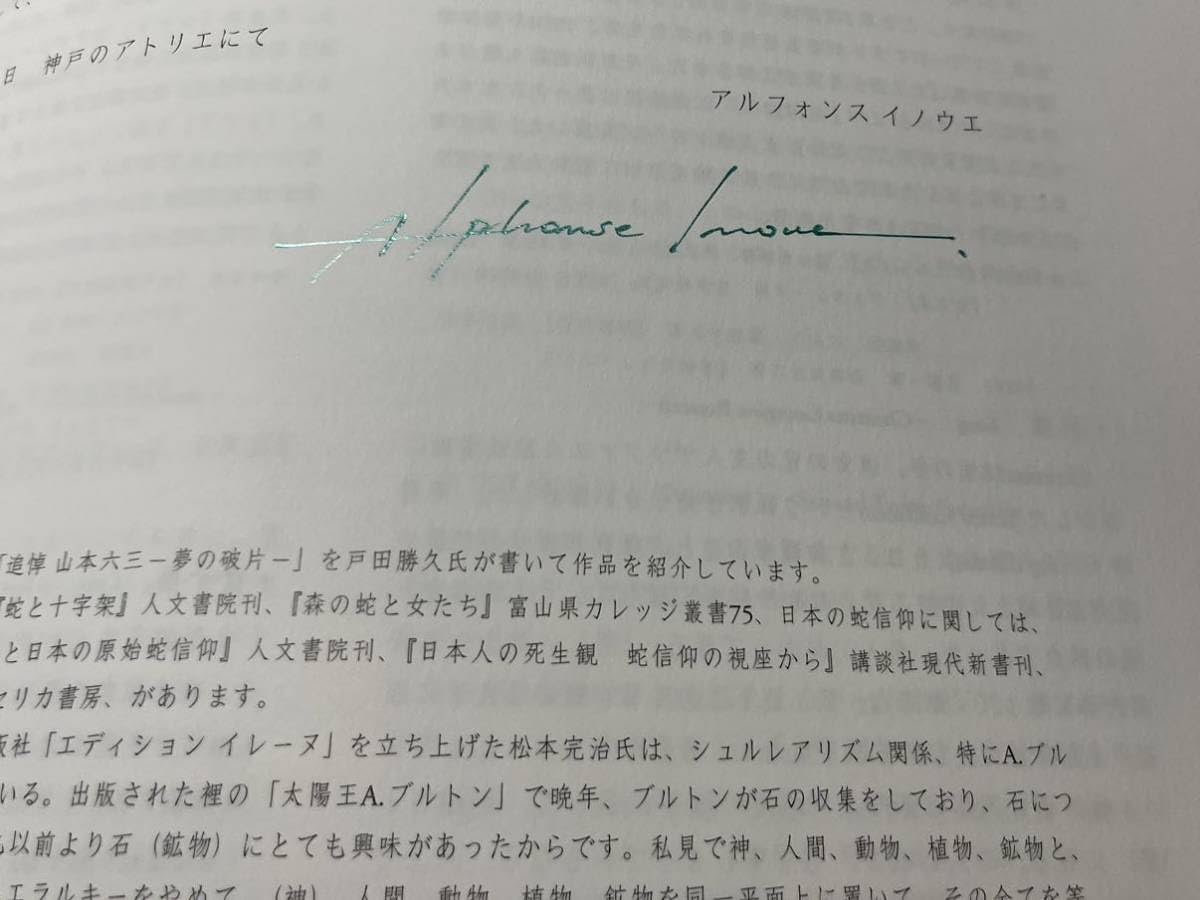 て、
日 神戸のアトリエにて
アルフォンス イノウエ
Alphonse Inoue.
「追悼 山本六三－夢の破片－」を戸田勝久氏が書いて作品を紹介しています。
『蛇と十字架』人文書院刊、『森の蛇と女たち』富山県カレッジ叢書75、日本の蛇信仰に関しては、
と日本の原始蛇信仰』人文書院刊、『日本人の死生観 蛇信仰の視座から』講談社現代新書刊、
セリカ書房、があります。
版社「エディション イレーヌ」を立ち上げた松本完治氏は、シュルレアリズム関係、特にA.ブル
いる。出版された裡の「太陽王A.ブルトン」で晩年、ブルトンが石の収集をしており、石につ
も以前より石（鉱物）にとても興味があったからです。私見で神、人間、動物、植物、鉱物と、
エラルキーをやめて、（神）、人間、動物、植物、鉱物を同一平面上に置いて、その全てを等